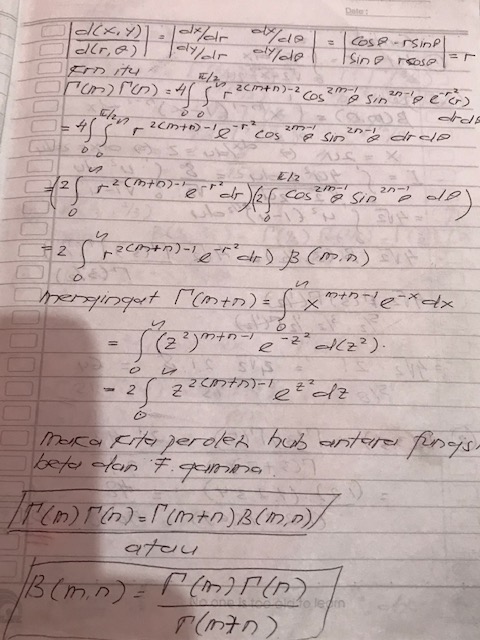 |d(x,y)/d(r,θ)| = |dx/dr dx/dθ dy/dr dy/dθ| = |cosθ -rsinθ sinθ rcosθ| = r
krn itu
Γ(m) Γ(n) = 4∫₀^{π/2} ∫₀^∞ r^{2(m+n)-2} cos^{2m-1}θ sin^{2n-1}θ e^{-r²}(r) dr dθ
= 4∫₀^{π/2} ∫₀^∞ r^{2(m+n)-1} e^{-r²} cos^{2m-1}θ sin^{2n-1}θ dr dθ
= (2∫₀^∞ r^{2(m+n)-1} e^{-r²} dr)(2∫₀^{π/2} cos^{2m-1}θ sin^{2n-1}θ dθ)
= 2∫₀^∞ r^{2(m+n)-1} e^{-r²} dr) β(m,n)
mengingat Γ(m+n) = ∫₀^∞ x^{m+n-1} e^{-x} dx
= ∫₀^∞ (z²)^{m+n-1} e^{-z²} d(z²).
= 2∫₀^∞ z^{2(m+n)-1} e^{z²} dz
maka kita peroleh hub antara fungsi
beta dan f. gamma.
Γ(m) Γ(n) = Γ(m+n) B(m,n)
atau
B(m,n) = Γ(m) Γ(n) / Γ(m+n)